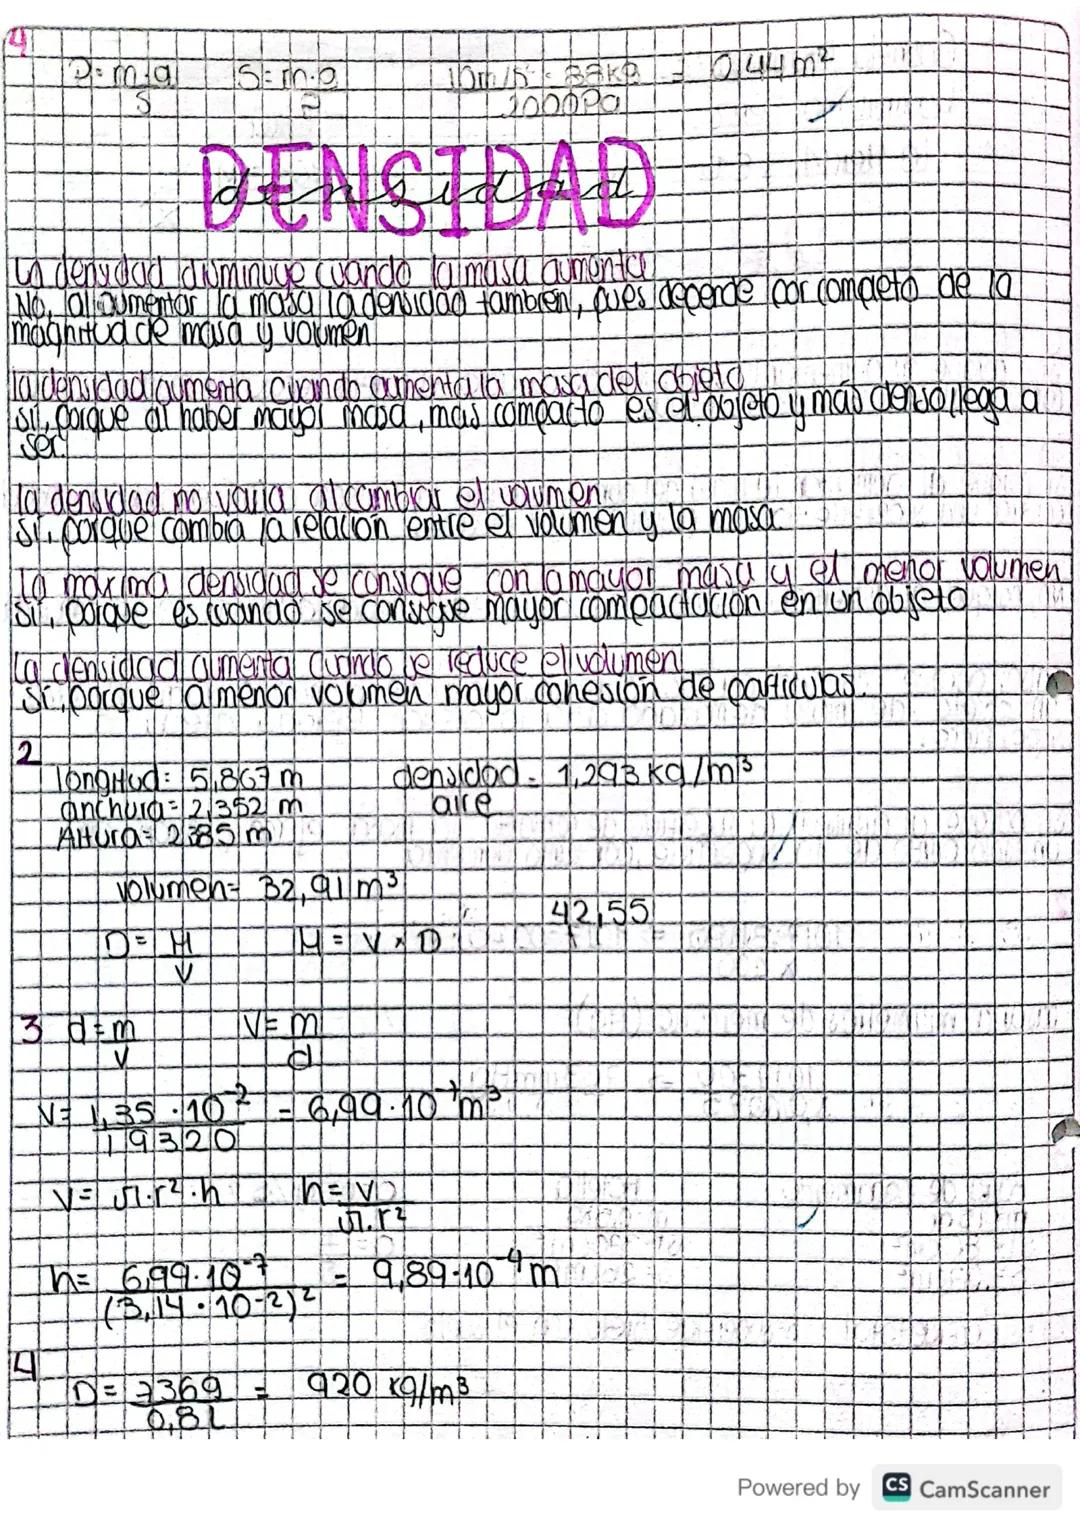 4
P=m·g S=m·g 10m/s · 88kg = 0,44m²
S P 2000Pa
DENSIDAD
densidad
La densidad disminuye cuando la masa aumenta
No, al aumentar la masa la densidad también, pues depende por completo de la
magnitud de masa y volumen
la densidad aumenta cuando aumenta la masa del objeto
sí, porque al haber mayor masa, mas compacto es el objeto y más denso llega a
ser.
la densidad no varia al cambiar el volumen
sí, porque cambia la relación entre el volumen y la masa
la maxima densidad se consigue con la mayor masa y el menor volumen
sí, porque es cuando se consigue mayor compactación en un objeto
La densidad aumenta cuando se reduce el volumen
sí, porque a menor volumen mayor cohesión de particulas.
2
longitud= 5,867 m densidad = 1,293 kg/m³
anchura= 2,352 m aire
Altura= 2385 m
volumen= 32,91 m³
42,55
D= M M = V × D
V
3 d=m V= m
V d
V= 1,35 · 10⁻² = 6,99·10⁻⁷m³
19320
V= π·r²·h h= V
π·r²
h= 6,99·10⁻⁷ = 9,89·10⁻⁴m
(3,14 · 10-2)²
4
D= 7369 = 920 kg/m³
0,8L
Powered by CS CamScanner